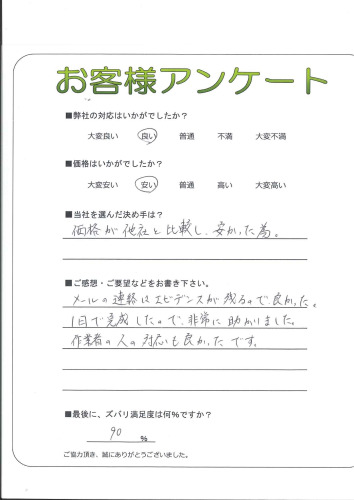 お客様アンケート
■弊社の対応はいかがでしたか?
大変良い 良い 普通 不満 大変不満
■価格はいかがでしたか?
大変安い 安い 普通 高い 大変高い
■当社を選んだ決め手は?
価格が他社と比較し、安かった為。
■ご感想・ご要望などをお書き下さい。
メールの連絡はエビデンスが残るので良かった。
1日で完成したので、非常に助かりました。
作業者の人の対応も良かったです。
■最後に、ズバリ満足度は何%ですか?
90 %
ご協力頂き、誠にありがとうございました。